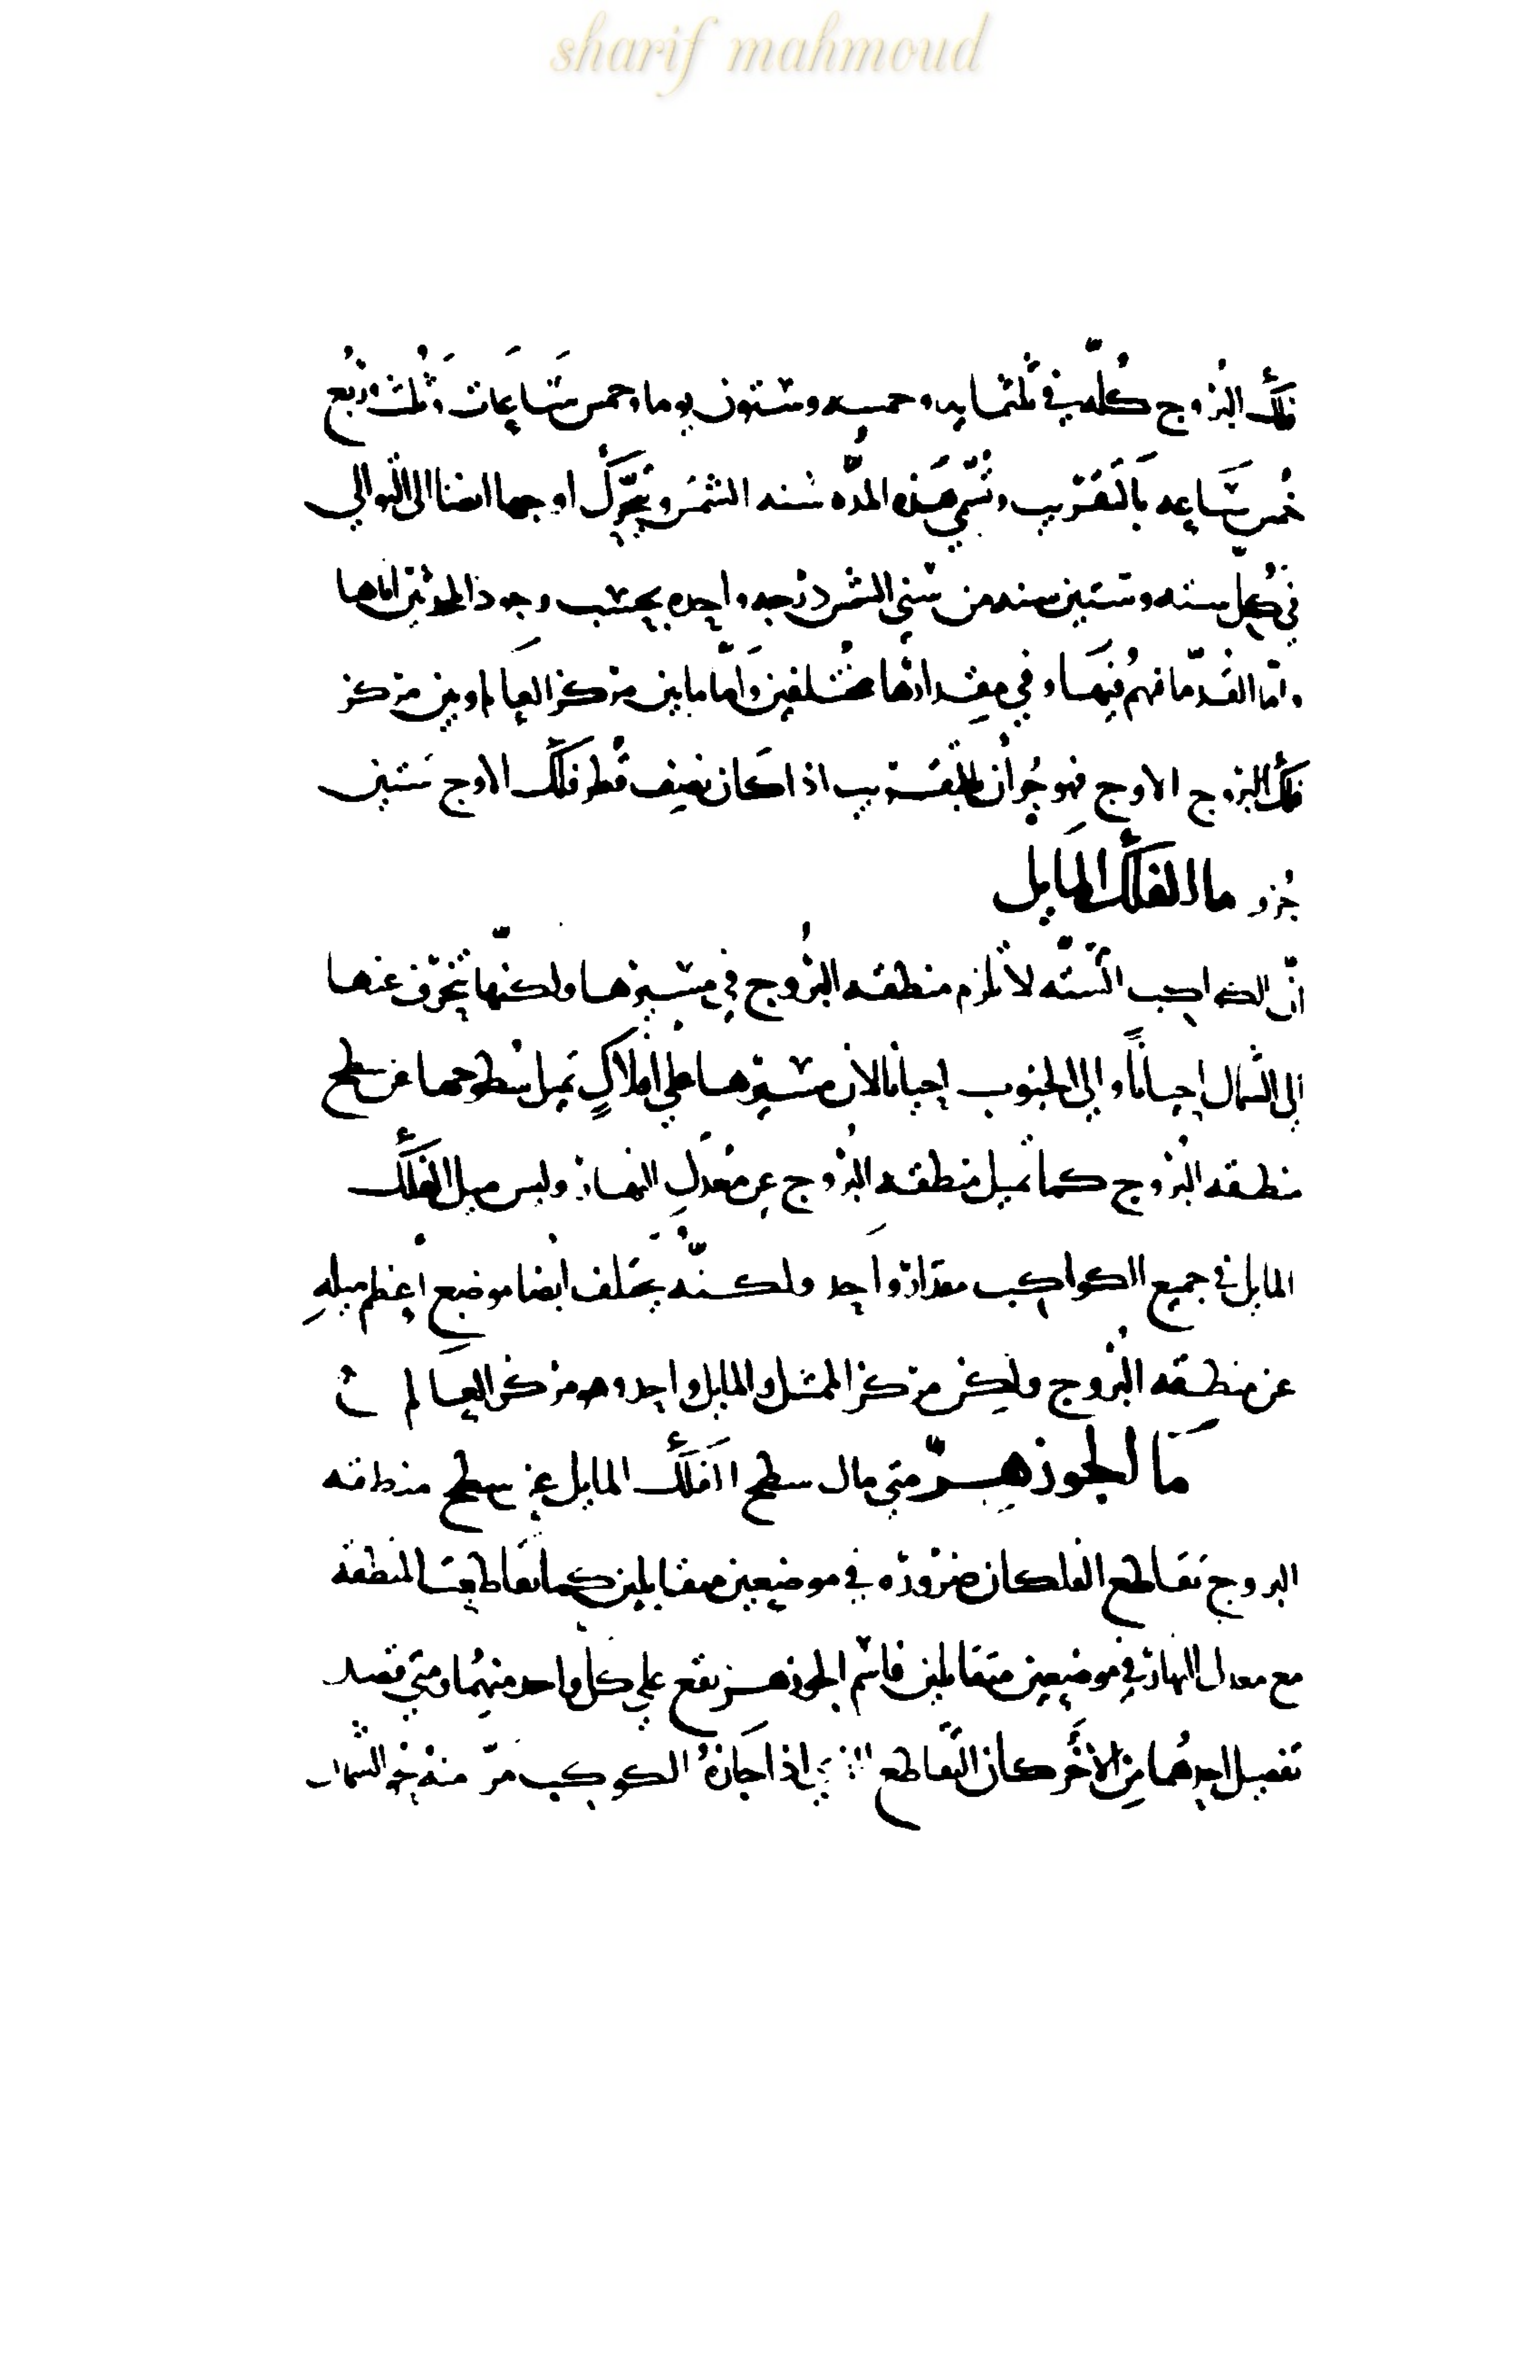 sharif mahmoud
فلك البُرُوج كُلّه في ثلثمايه وخمسه وستون يوما وخمس سَاعات وثُلث ورُبع
خُمس سَاعه بالتقريب وتُسمّي هَذه المدّه سنه الشمس ويتحرّك اوجها ايضا الي التوالي
في كلّ سته وستين سنه من سني الشمس درجه واحده بحسب وجود المحدثين اياها
وامّا القدما فهُم فيهَا وفي مقدارها مختلفين وَامّا ما بين مركز العَالم وبين مركز
فلك البروج الاوج فهو جُزأن بالتقريب اذا كان نصف قُطر فلَك الاوج ستين
جُزو ما الفلَك المَايل
انّ الكواكب الستّه لا تلزم منطقه البُرُوج في مسيرها ولكنّها تنحرف عنها
الي الشمال احياناً والي الجنوب احيانا لان مسيرها علي افلاكٍ تميل سُطوحها عن سطح
منطقه البُروج كما تميل منطقه البُروج عن معَدّلِ النهار وليس ميل الفلَك
المايل في جميع الكواكب مقدار واحد ولكنّه يختلف ايضا موضع اعظم ميلهِ
عن منطقه البُروج ولكن مركز الممثل والمايل واحد وهو مركز العالم
مَا الجوزهِرّ متي مال سطح الفلَك المايل عن سطح منطقه
البروج تقاطع الفلكان ضروره في موضعين متقابلين كما تقاطعت المنطقه
مع معدل النهار في موضعين متقابلين فاسم الجوزهر يقع علي كل واحد منهُما ومتي قصد
تفصيل احدهُما من الاخَر كان التقاطع الذي اذا جَازهُ الكوكب مرّ منه نحو الشمال